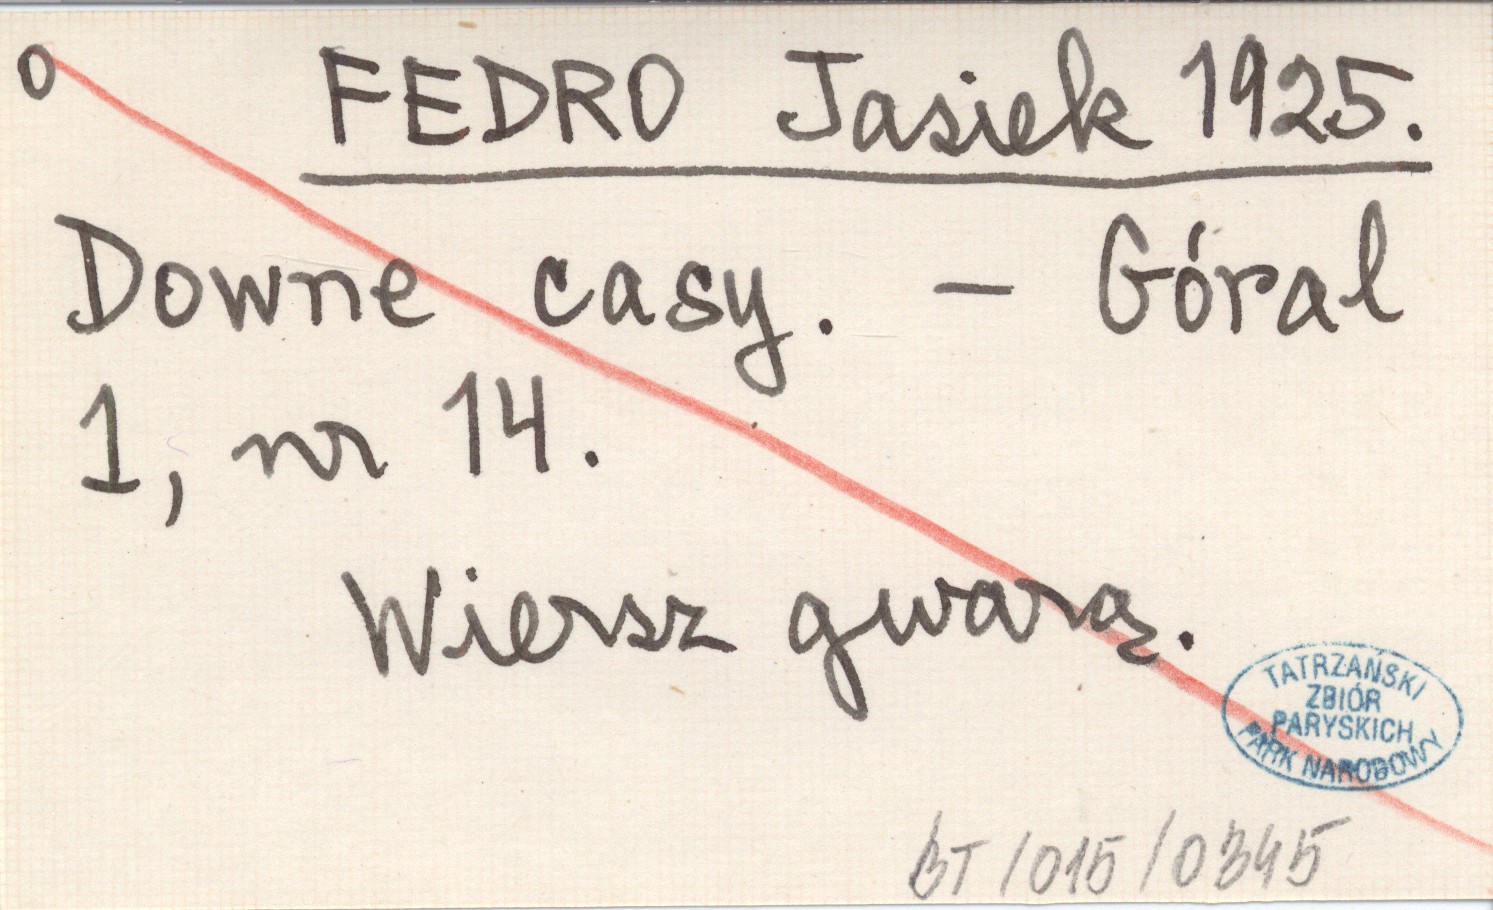 O FEDRO Jasiek 1925.
Downe casy. – Góral
1, nr 14.
Wiersz gwarą.
TATRZAŃSKI
ZBIÓR
PARYSKICH
PARK NARODOWY
BT/015/0345